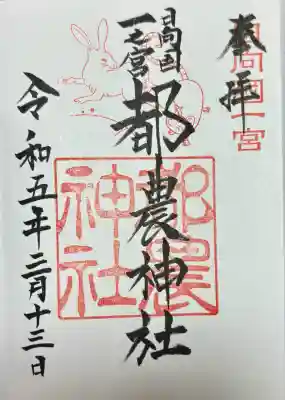 奉拝
日向国一宮
日向国
一之宮
都農神社
都農神社
令和五年二月十三日